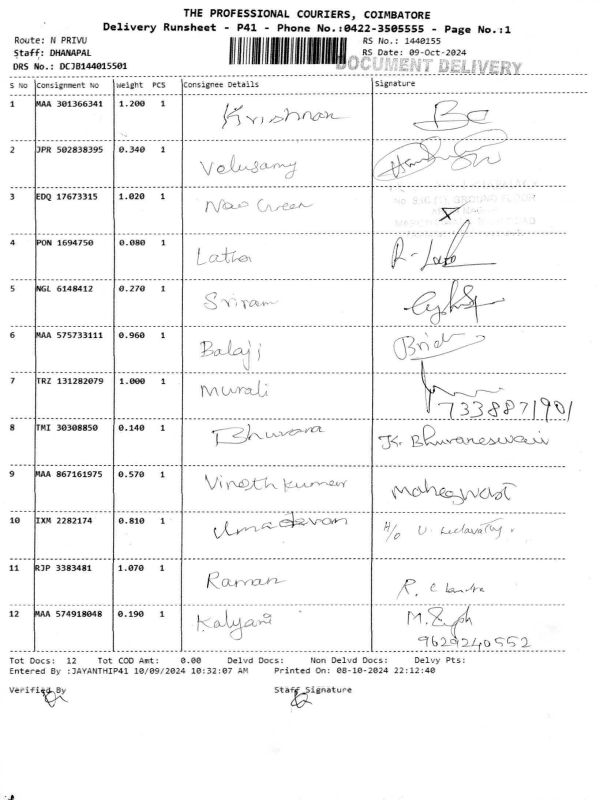 THE PROFESSIONAL COURIERS, COIMBATORE
Delivery Runsheet - P41 - Phone No.:0422-3505555 - Page No.:1
Route: N PRIVU RS No.: 1440155
Staff: DHANAPAL RS Date: 09-Oct-2024
DRS No.: DCJB144015501 DOCUMENT DELIVERY
S No Consignment No Weight PCS Consignee Details Signature
1 MAA 301366341 1.200 1 Krishnan
2 JPR 502838395 0.340 1 Velusamy
3 EDQ 17673315 1.020 1 GROUND FLOOR
4 PON 1694750 0.080 1 Latha
5 NGL 6148412 0.270 1 Sriram
6 MAA 575733111 0.960 1 Balaji
7 TRZ 131282079 1.000 1 Murali 7338871901
8 TMI 30308850 0.140 1 Bhuvana K. Bhuvaneswari
9 MAA 867161975 0.570 1 Vinothkumar Maheswari
10 IXM 2282174 0.810 1 Umadevan H/o U.
11 RJP 3383481 1.070 1 Raman R. Chandra
12 MAA 574918048 0.190 1 Kalyani M. 9629240552
Tot Docs: 12 Tot COD Amt: 0.00 Delvd Docs: Non Delvd Docs: Delvy Pts:
Entered By :JAYANTHIP41 10/09/2024 10:32:07 AM Printed On: 08-10-2024 22:12:40
Verified By Staff Signature